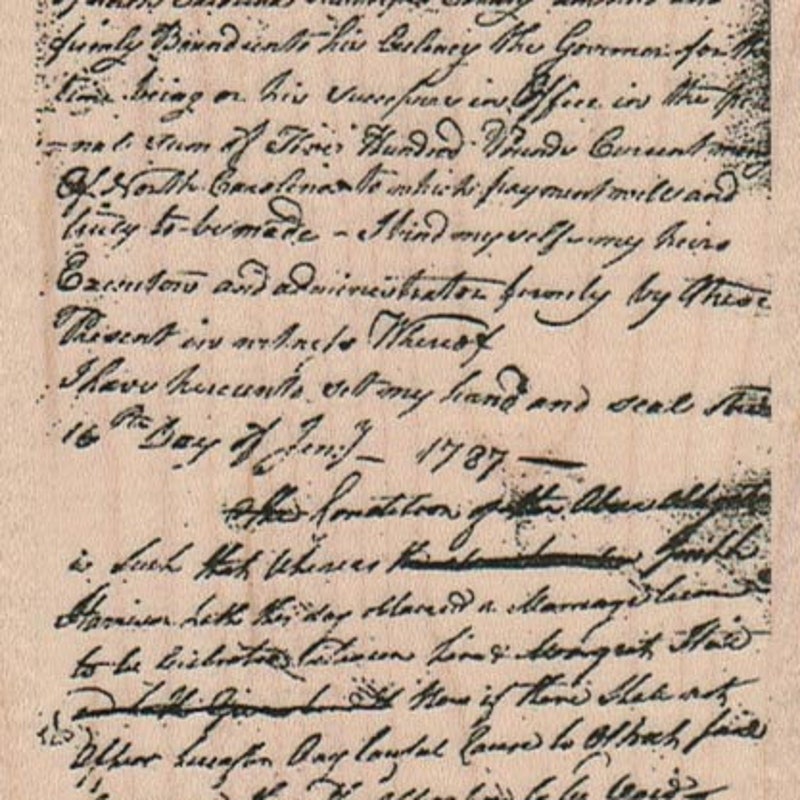 firmly Bound unto his Exclency the Governor for the
time being or his successors in Office in the pe
-nal sum of Five Hundred Pounds Current mony
Of North Carolina to which payment well and
truly to be made - I bind my self my heirs
Executors and administrators firmly by these
Present in witness Whereof
I have hereunto set my hand and seal this
16th Day of Jany 1787 —
The Condition of the Above Obligati
is Such that Whereas
hath this day obtained a Marriage licen
to be Celebrated between him &
then if there shall not
Appear hereafter Any lawful Cause to Obstruct said